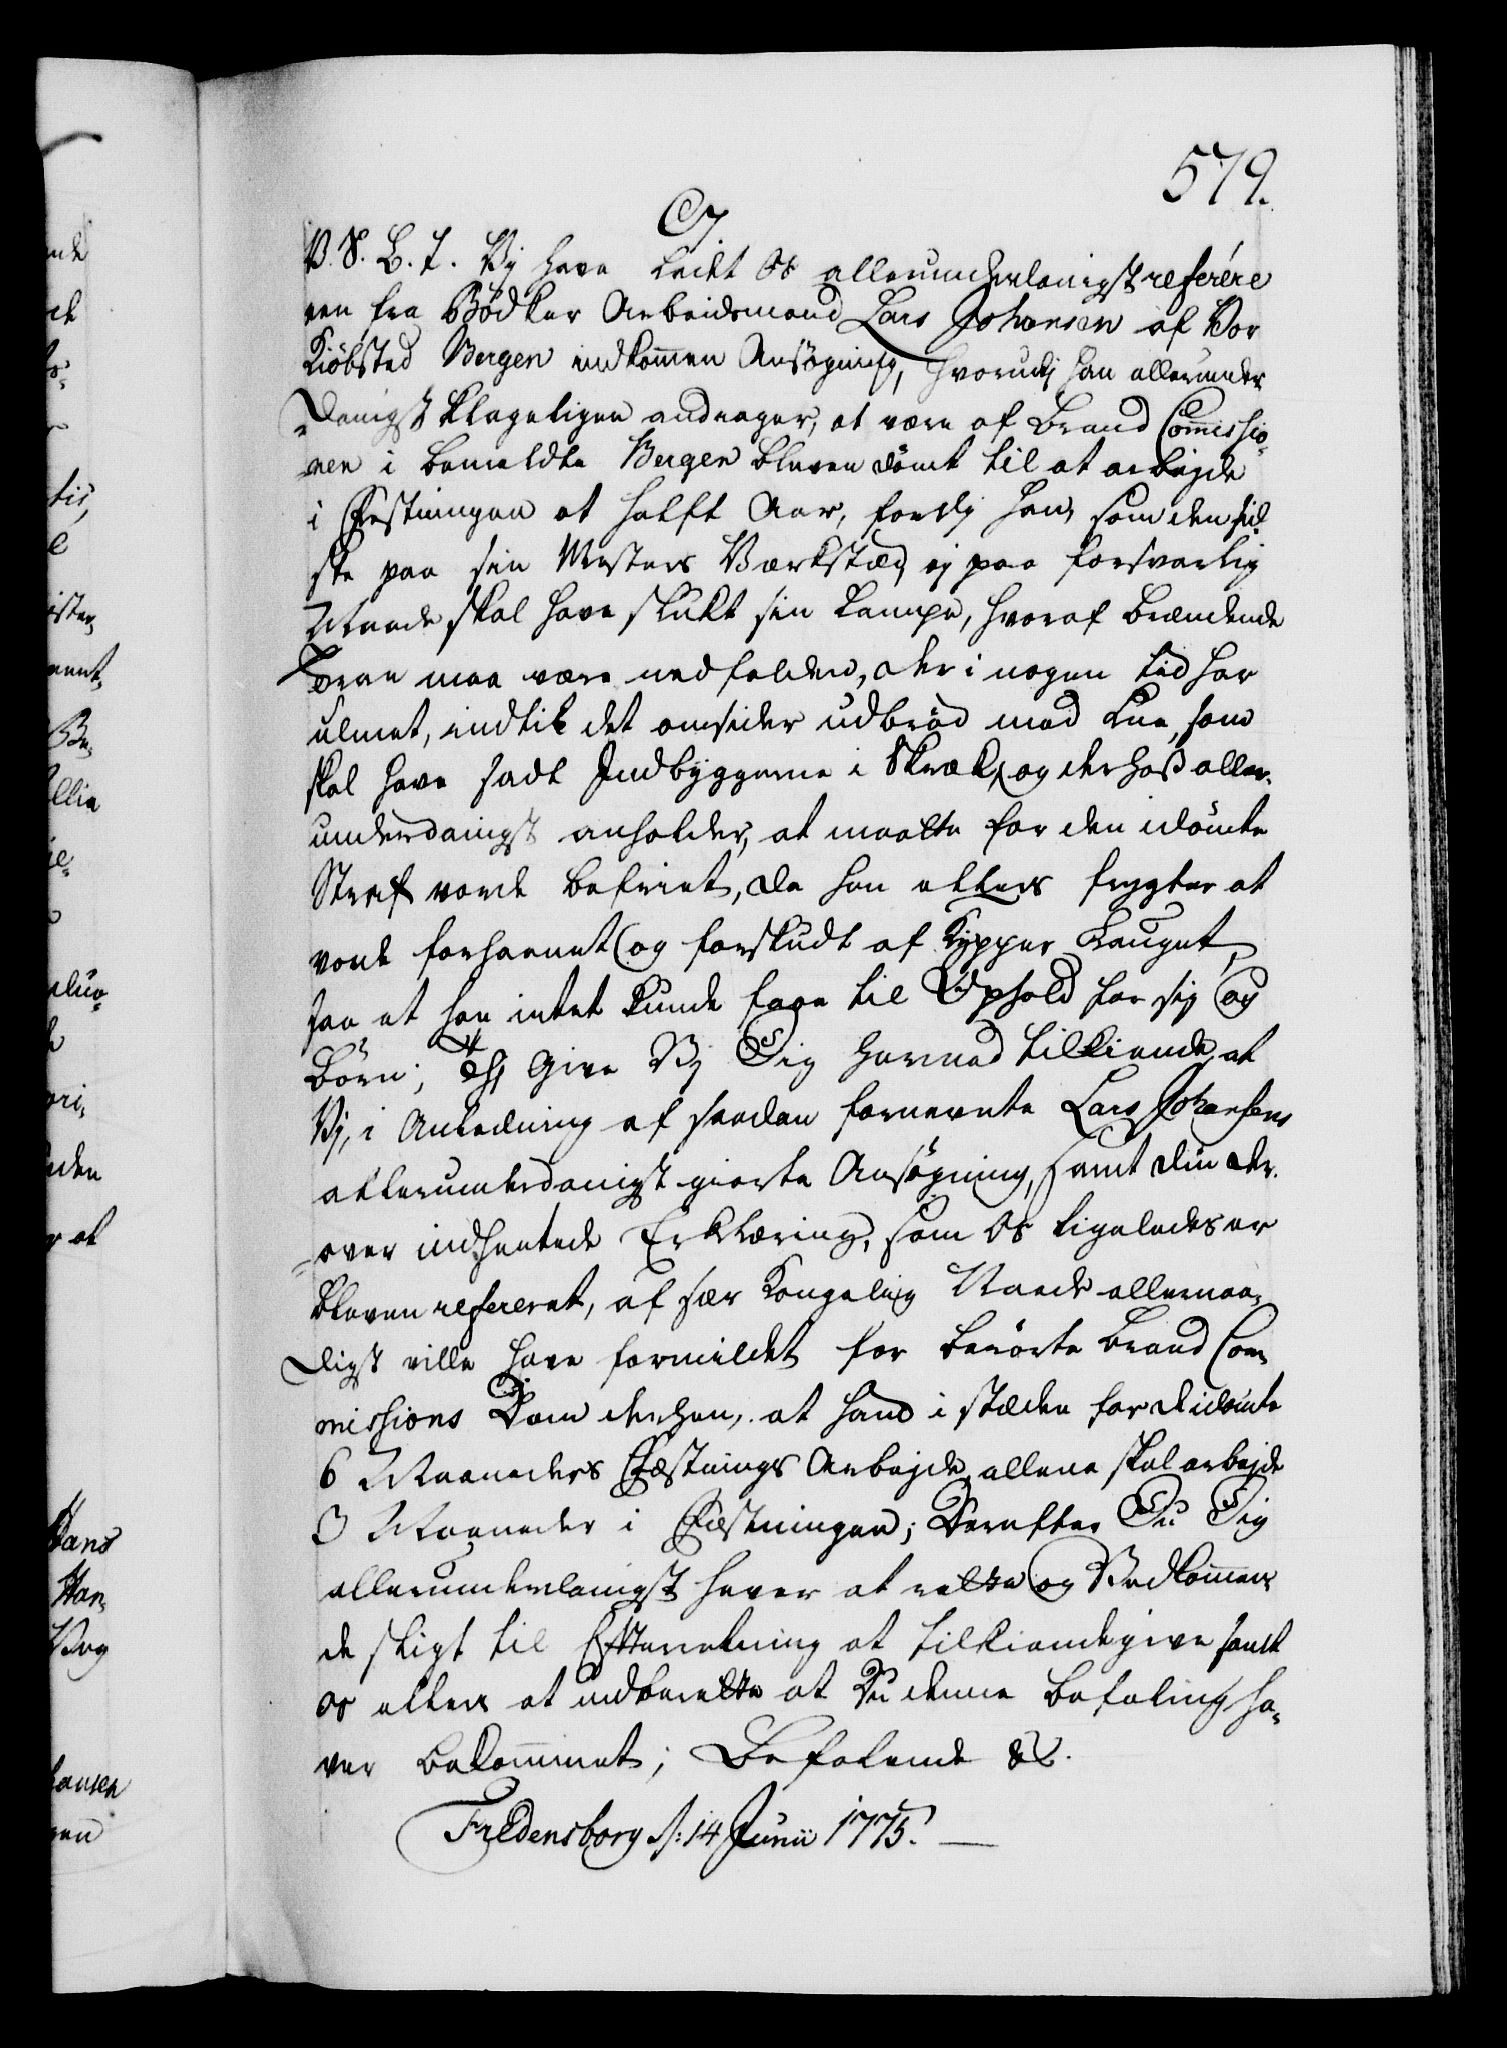 579.
C7.
V. S. B. T. Vj have ladet Os allerunderdanigst referére
een fra Bødker Arbeidsmand Lars Johansen af Vor
Kiøbsted Bergen indkom̄en Ansøgning, hvorudj han allerunder
danigst klageligen andrager, at være af Brand Com̄issio-
nen i bemeldte Bergen bleven dömt til at arbejde
i Fæstningen et halft Aar, fordj han, som den sid
ste paa sin Mesters Værksted, ej paa forsvarlig
Maade skal have slukt sin Lampe, hvoraf brændende
Tran maa være nedfalden, der i nogen tid har
ulmet, indtil det omsider udbrød med Lue, som
skal have sadt Indbyggerne i Skræk, og derhos aller-
underdanigst anholder, at maatte for den idömte
Straf vorde befriet, da han ellers frygter at
vorde forhaanet og forskudt af Kypper Lauget,
saa at han intet kunde faae til Ophold for sig og
Börn; Thj Give Vj Dig hermed tilkiende, at
Vj, i Anledning af saadan fornævnte Lars Johansens
allerunderdanigst giorte Ansøgning, samt din der-
over indhentede Erklæring, som Os ligeledes er
bleven refereret, af sær Kongelig Naade allernaa-
digst ville have formildet før berørte Brand Com
missions Dom derhen, at hand i stæden for de idömte
6 Maaneders Fæstnings Arbejde, allene skal arbejde
3 Maaneder i Fæstningen; Derefter Du Dig
allerunderdanigst haver at rette og Vedkom̄en
de sligt til Efterretning at tilkiendegive samt
os ellers at indberette at Du denne befaling ha-
ver bekom̄met; Befalende &c.
Fredensborg d: 14 Junii 1775.